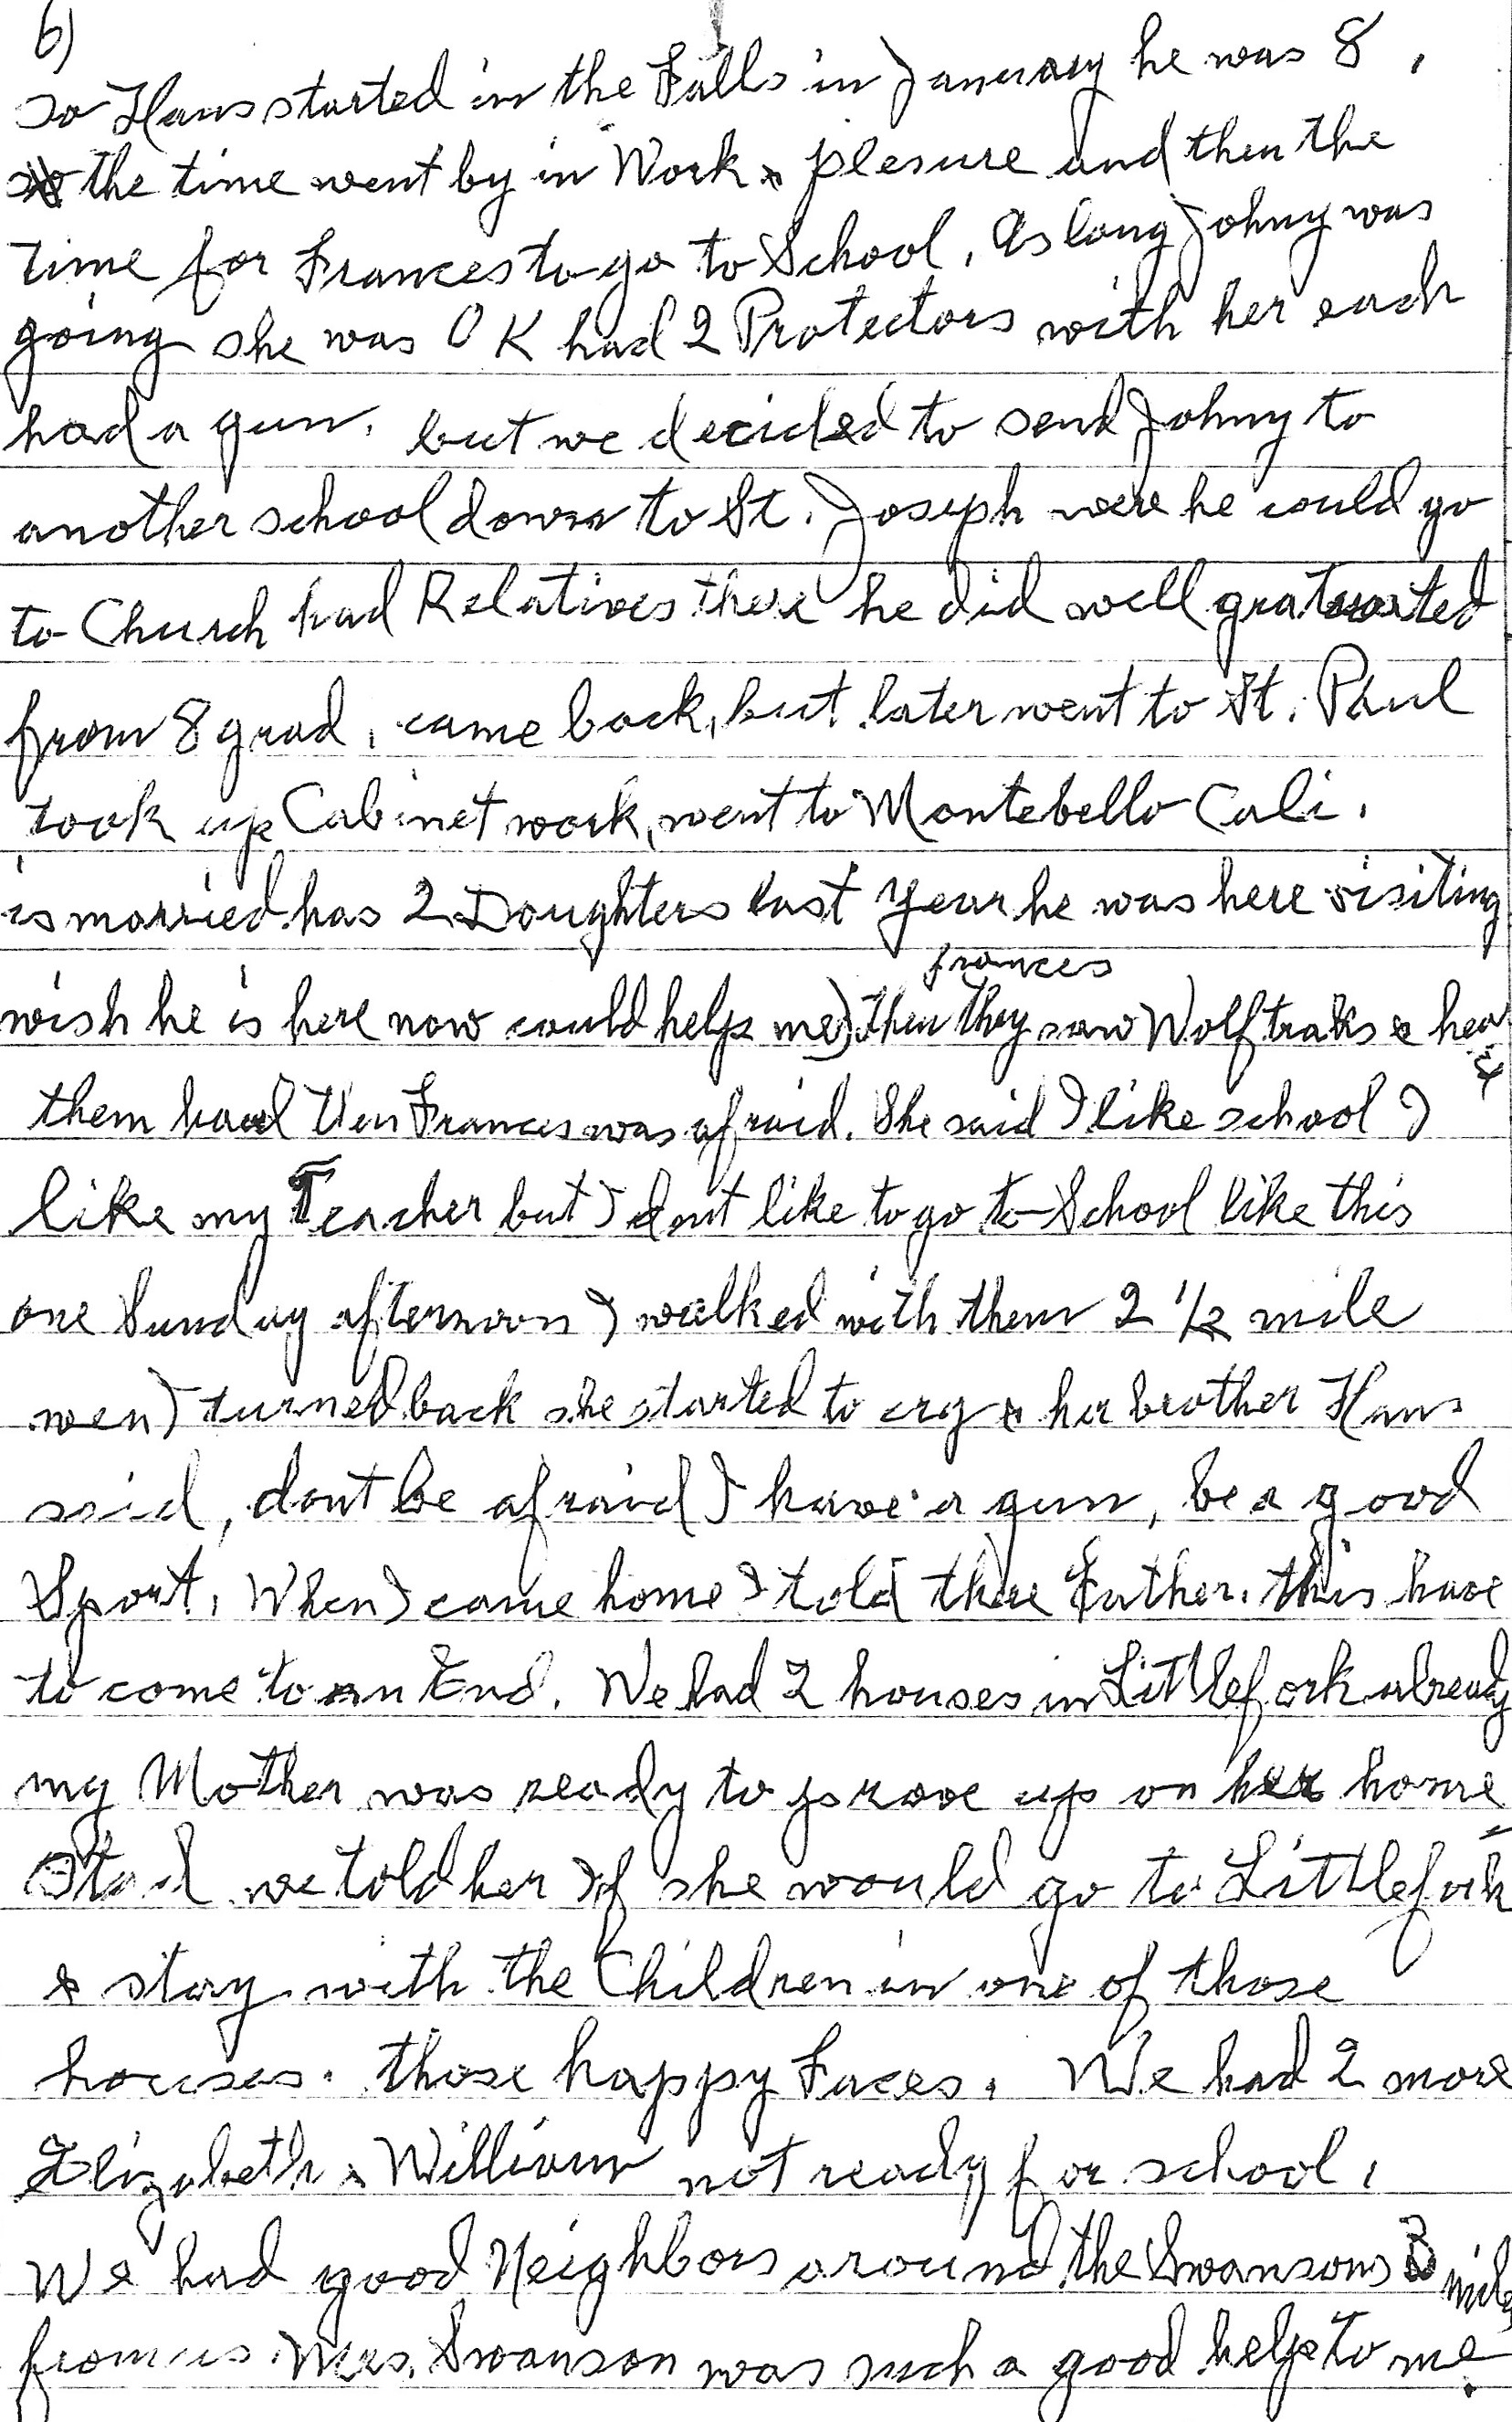 6)
So Hans started in the Falls in January he was 8.
the time went by in Work & plesure and then the
time for Frances to go to School. As long Johny was
going she was O K had 2 Protectors with her each
had a gun. but we decided to send Johny to
another school down to St. Joseph were he could go
to Church had Relatives there he did well gratuated
from 8 grad. came back, but later went to St. Paul
took up Cabinet work, went to Montebello Cali.
is married has 2 Doughters last year he was here visiting
frances
wish he is here now could help me) then they saw Wolf traks & hear
them howl then Frances was afraid. She said I like school I
like my Teacher but I dont like to go to School like this
one Sunday afternoon I walked with them 2 1/2 mile
wen I turned back she started to cry & her brother Hans
said, dont be afraid I have a gun, be a good
Sport. When I came home I told there Father. this have
to come to an End. We had 2 houses in Littlefork already
my Mother was ready to prove up on her home
Stad we told her if she would go to Littlefork
& stay with the Children in one of those
houses. those happy Faces. We had 2 more
Elizabeth & William not ready for school.
We had good Neighbors around the Swansons 3 miles
from us. Mrs. Swanson was such a good help to me.